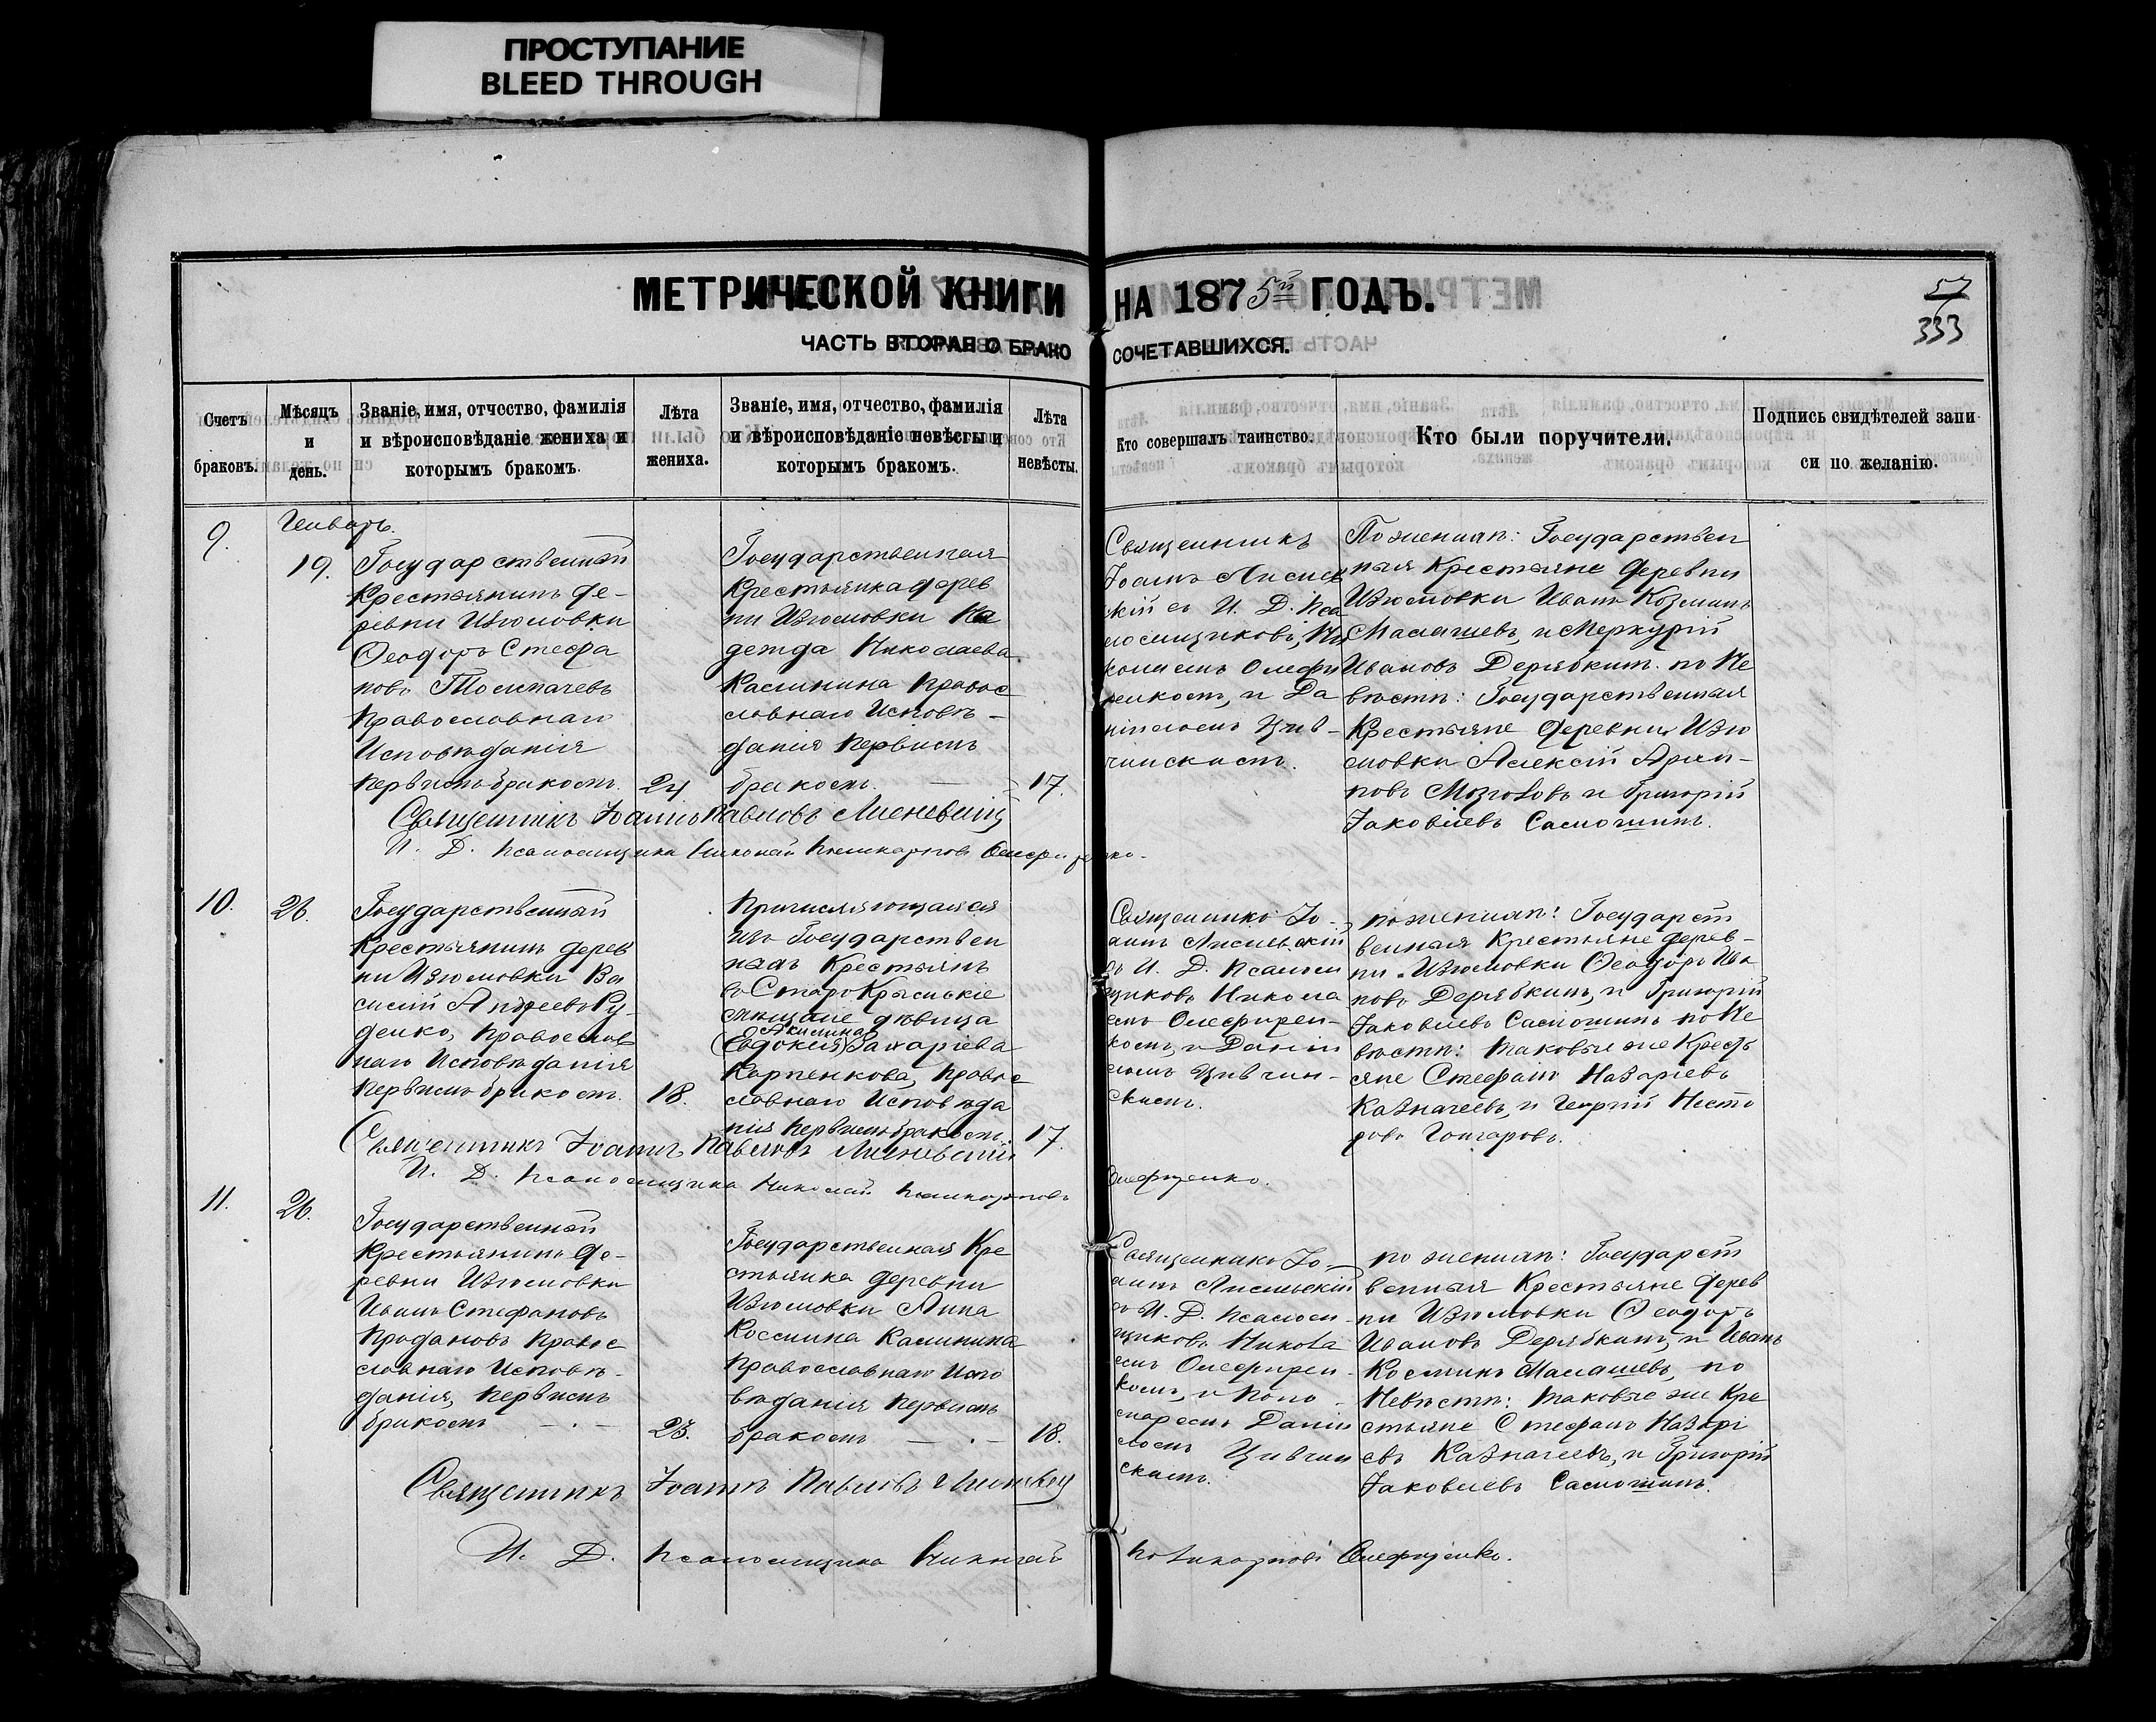 ПРОСТУПАНИЕ
BLEED THROUGH
МЕТРИЧЕСКОЙ КНИГИ НА 1875й ГОДЪ.
ЧАСТЬ ВТОРАЯ О БРАКОСОЧЕТАВШИХСЯ.
57
333
Счетъ
браковъ.
Мѣсяцъ
и
день.
Званіе, имя, отчество, фамилія
и вѣроисповѣданіе жениха и
которымъ бракомъ.
Лѣта
жениха.
Званіе, имя, отчество, фамилія
и вѣроисповѣданіе невѣсты и
которымъ бракомъ.
Лѣта
невѣсты.
Кто совершалъ таинство.
Кто были поручители.
Подпись свидѣтелей запи
си по желанію.
9.
Генварь.
19.
Государственный
Крестьянинъ де-
ревни Изюмовки
Ѳеодоръ Стефа
новъ Толмачевъ
Православнаго
Исповѣданія
первымъ бракомъ.
24
Государственная
Крестьянка дерев
ни Изюмовки На
дежда Николаева
Калинина Правос
лавнаго Исповѣ-
данія первымъ
бракомъ.
17.
Священникъ
Іоаннъ
скій съ И. Д. Пса
ломщиковъ, Ни
колаемъ Олефи
ренкомъ, и Да
ніиломъ Цив-
чинскимъ.
По женихѣ: Государствен
ныя Крестьяне деревни
Изюмовки Иванъ Козминъ
Малашевъ, и Меркурій
Ивановъ Дерябкинъ. по Не
вѣстѣ: Государственныя
Крестьяне деревни Изю
мовки Алексій
новъ и Григорій
Іаковлевъ Самошинъ.
Священникъ Іоаннъ Павловъ
И. Д. Псаломщика Николай Поликарповъ Олефиренко.
10.
26.
Государственный
Крестьянинъ дерев
ни Изюмовки Ва
силій Андреевъ Ру
денко, Православ
наго Исповѣданія
первымъ бракомъ.
18.
Причисляющаяся
изъ Государствен
ныхъ Крестьянъ
въ Старо Крымскіе
мѣщане дѣвица
Акилина
(Евдокія) Захаріева
Карпенкова, Правос
лавнаго Исповѣда
нія первымъ бракомъ.
17.
Священникъ Іо-
аннъ
съ И. Д. Псаломщ
щиковъ Никола
емъ Олефирен-
комъ, и Даніи
ломъ Цивчин-
скимъ.
по женихѣ: Государст
венныя Крестьяне дерев-
ни Изюмовки Ѳеодоръ Ива
новъ Дерябкинъ, и Григорій
Іаковлевъ Самошинъ по Не
вѣстѣ: таковые же Кресть
яне Стефанъ Назаріевъ
Казначеевъ, и Георгій Несто
ровъ Гончаровъ.
Священникъ Іоаннъ Павловъ
И. Д. Псаломщика Николай Поликарповъ Олефиренко.
11.
26.
Государственный
Крестьянинъ де-
ревни Изюмовки
Иванъ Стефановъ
Продановъ Правос
лавнаго Исповѣ-
данія, первымъ
бракомъ
23.
Государственная Кре
стьянка деревни
Изюмовки Анна
Космина Калинина
Православнаго Испо
вѣданія первымъ
бракомъ
18.
Священникъ Іо-
аннъ
съ И. Д. Псалом-
щиковъ Никола
емъ Олефирен-
комъ, и Поно-
маремъ Даніи
ломъ Цивчин
скимъ.
по женихѣ: Государст
венныя Крестьяне дерев
ни Изюмовки Ѳеодоръ
Ивановъ Дерябкинъ, и Иванъ
Косминъ Малашевъ, по
Невѣстѣ: таковые же Кре
стьяне Стефанъ Назарі
евъ Казначеевъ, и Григорій
Іаковлевъ Самошинъ.
Священникъ Іоаннъ Павловъ
И. Д. Псаломщика Николай Поликарповъ Олефиренко.